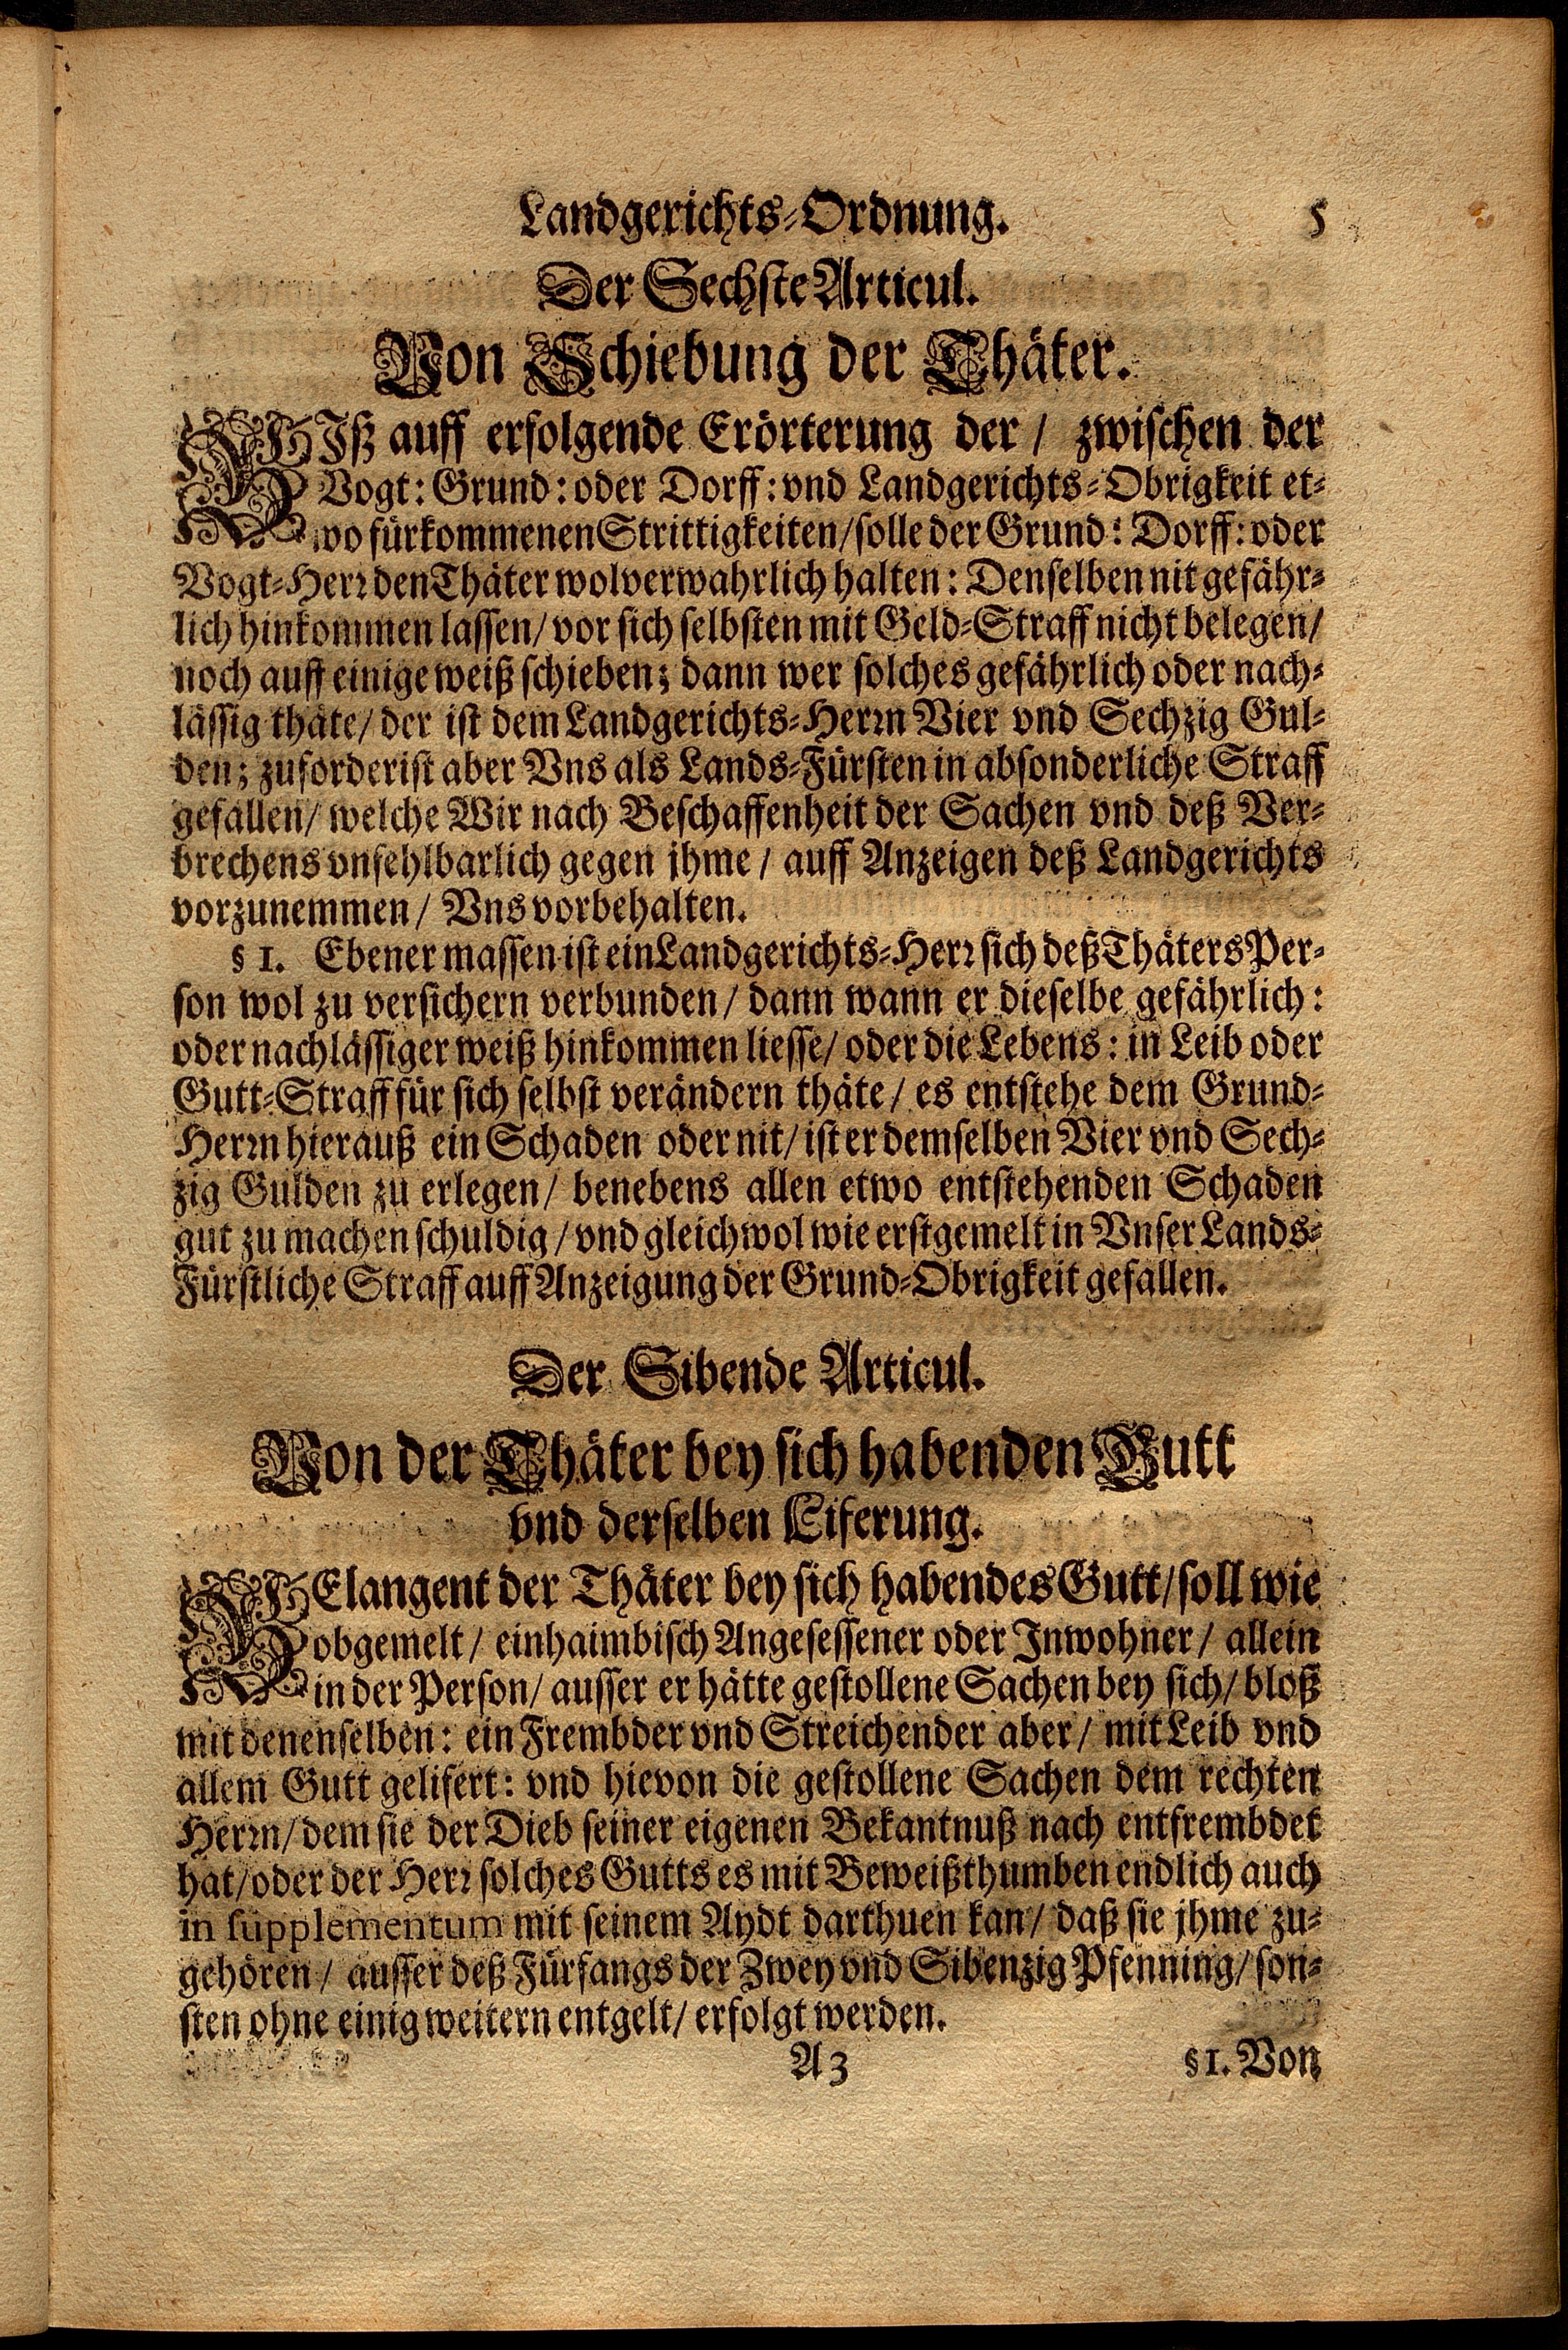 Landgerichts-Ordnung. 5
Der Sechste Articul.
Von Schiebung der Thäter.
BIß auff erfolgende Erörterung der / zwischen der
Vogt: Grund: oder Dorff: vnd Landgerichts-Obrigkeit et-
wo fürkommenen Strittigkeiten/ solle der Grund: Dorff: oder
Vogt-Herr den Thäter wolverwahrlich halten: Denselben nit gefähr-
lich hinkommen lassen/ vor sich selbsten mit Geld-Straff nicht belegen/
noch auff einige weiß schieben; dann wer solches gefährlich oder nach-
lässig thäte/ der ist dem Landgerichts-Herrn Vier vnd Sechzig Gul-
den; zuforderist aber Vns als Lands-Fürsten in absonderliche Straff
gefallen/ welche Wir nach Beschaffenheit der Sachen vnd deß Ver-
brechens vnfehlbarlich gegen jhme / auff Anzeigen deß Landgerichts
vorzunemmen/ Vns vorbehalten.
§ 1. Ebener massen ist ein Landgerichts-Herr sich deß Thäters Per-
son wol zu versichern verbunden/ dann wann er dieselbe gefährlich:
oder nachlässiger weiß hinkommen liesse/ oder die Lebens: in Leib oder
Gutt-Straff für sich selbst verändern thäte/ es entstehe dem Grund-
Herrn hierauß ein Schaden oder nit/ ist er demselben Vier vnd Sech-
zig Gulden zu erlegen/ benebens allen etwo entstehenden Schaden
gut zu machen schuldig/ vnd gleichwol wie erstgemelt in Vnser Lands-
Fürstliche Straff auff Anzeigung der Grund-Obrigkeit gefallen.
Der Sibende Articul.
Von der Thäter bey sich habenden Gutt
vnd derselben Liferung.
BElangent der Thäter bey sich habendes Gutt/ soll wie
obgemelt/ einhaimbisch Angesessener oder Inwohner/ allein
in der Person/ ausser er hätte gestollene Sachen bey sich/ bloß
mit denenselben: ein Frembder vnd Streichender aber/ mit Leib vnd
allem Gutt gelifert: vnd hievon die gestollene Sachen dem rechten
Herrn/ dem sie der Dieb seiner eigenen Bekantnuß nach entfrembdet
hat/ oder der Herr solches Gutts es mit Beweißthumben endlich auch
in supplementum mit seinem Aydt darthuen kan/ daß sie jhme zu-
gehören/ ausser deß Fürfangs der Zwey vnd Sibenzig Pfenning/ son-
sten ohne einig weitern entgelt/ erfolgt werden.
A 3 § 1. Von